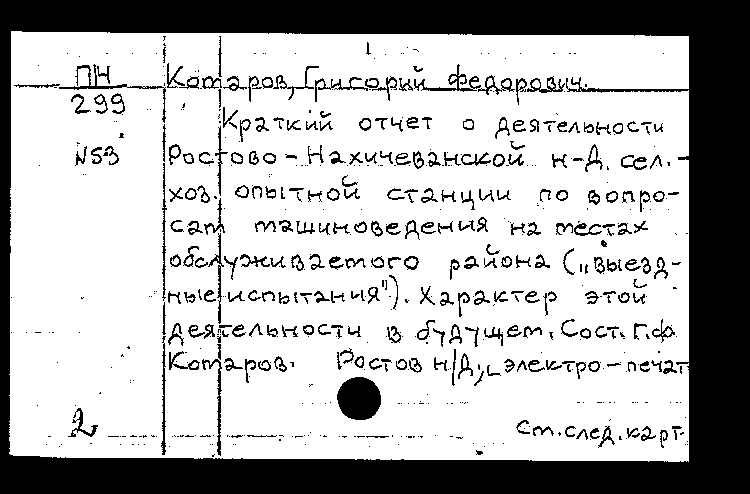 1
ПН Комаров, Григорий Федорович.
299
Краткий отчет о деятельности
N53 Ростово-Нахичеванской н-Д. сел.-
хоз. опытной станции по вопро-
сам машиноведения на местах
обслуживаемого района („выезд-
ные испытания"). Характер этой
деятельности в будущем. Сост. Г.Ф.
Комаров. Ростов н/Д, электро-печат
2
См. след. карт.